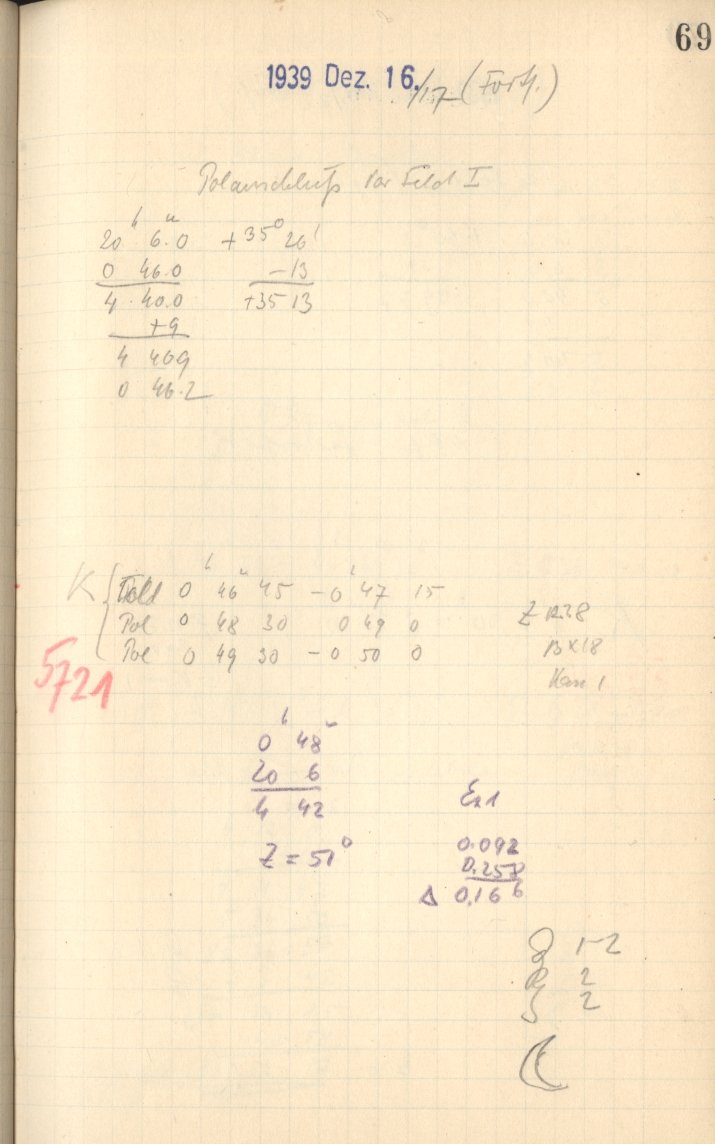 69
1939 Dez. 16./17 (Forts.)
Polanschluß Feld I
20 h 6.0 m +35° 26'
0 46.0 -13
4 40.0 +35 13
+9
4 40 9
0 46.2
K { Feld 0 h 46 m 45 - 0 h 47 15
Pol 0 48 30 0 49 0 Z
Pol 0 49 30 - 0 50 0
5721
0 h 48 m
20 6
4 42
Z = 51°
Ex 1
0.092
0.257
Δ 0.166
1-2
2
2